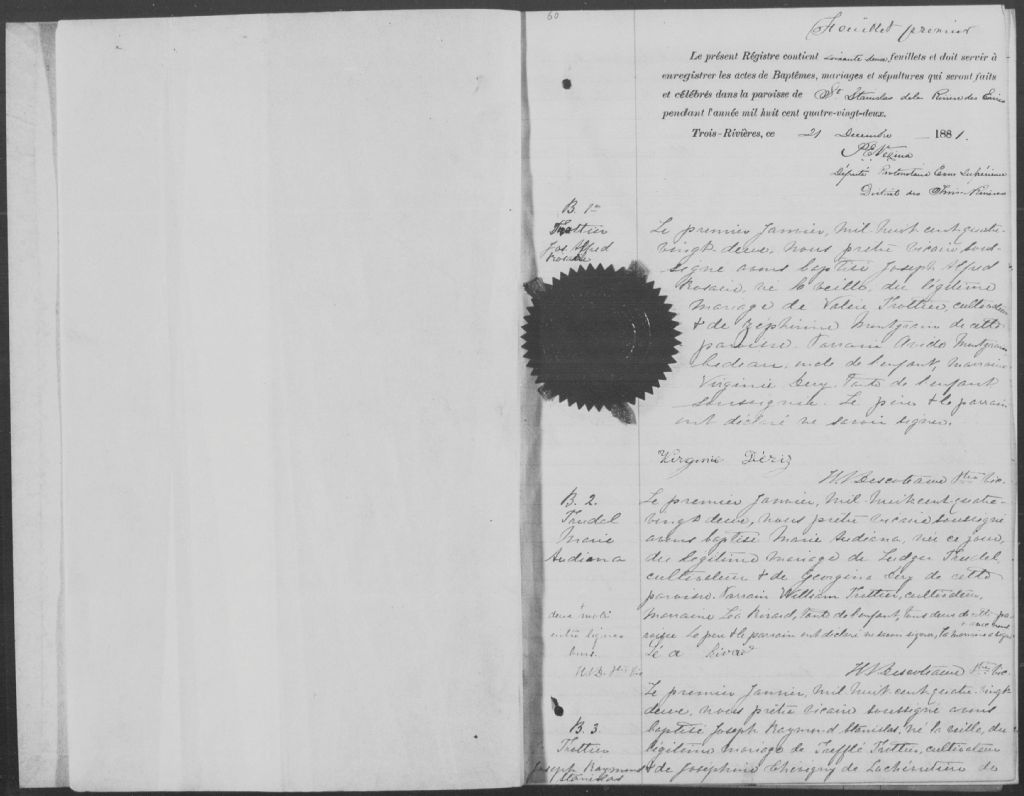 60
Feuillet premier
Le présent Régistre contient soixante deux feuillets et doit servir à
enregistrer les actes de Baptêmes, mariages et sépultures qui seront faits
et célébrés dans la paroisse de St Stanislas de la Rivière des Envies
pendant l'année mil huit cent quatre-vingt-deux.
Trois-Rivières, ce 21 Décembre 1881.
Député Protonotaire Cour Supérieure
District des Trois-Rivières
B. 1er
Trottier
Jos. Alfred
Rosario
Le premier Janvier, mil huit cent quatre-
vingt deux, nous prêtre vicaire sous-
signé avons baptisé Joseph Alfred
Rosario, né la veille, du légitime
mariage de Valère Trottier, cultivateur
& de Zéphirine Montgrain de cette
paroisse. Parrain Montgrain
oncle de l'enfant, marraine
Virginie Dery, tante de l'enfant
soussignée. Le père & le parrain
ont déclaré ne savoir signer.
Virginie Déry
Ptre Vic.
B. 2.
Trudel
Marie
Audiana
Le premier Janvier, mil huit cent quatre-
vingt deux, nous prêtre vicaire soussigné
avons baptisé Marie Audiana, née ce jour,
du légitime mariage de Ludger Trudel,
cultivateur & de Georgena Dery de cette
paroisse. Parrain William Trottier, cultivateur,
marraine Léa tante de l'enfant, tous deux de cette pa-
roisse Le père & le parrain ont déclaré ne savoir signer, la marraine a signé
avec nous
deux mots
entre lignes
bons.
H.N.D. Ptre Vic
Léa
Ptre Vic.
B. 3
Trottier
Joseph Raymond
Stanislas
Le premier Janvier, mil huit cent quatre-vingt
deux, nous prêtre vicaire soussigné avons
baptisé Joseph Raymond Stanislas, né la veille, du
légitime mariage de Trefflé Trottier, cultivateur
& de Joséphine Chévigny de Lachévrotière de